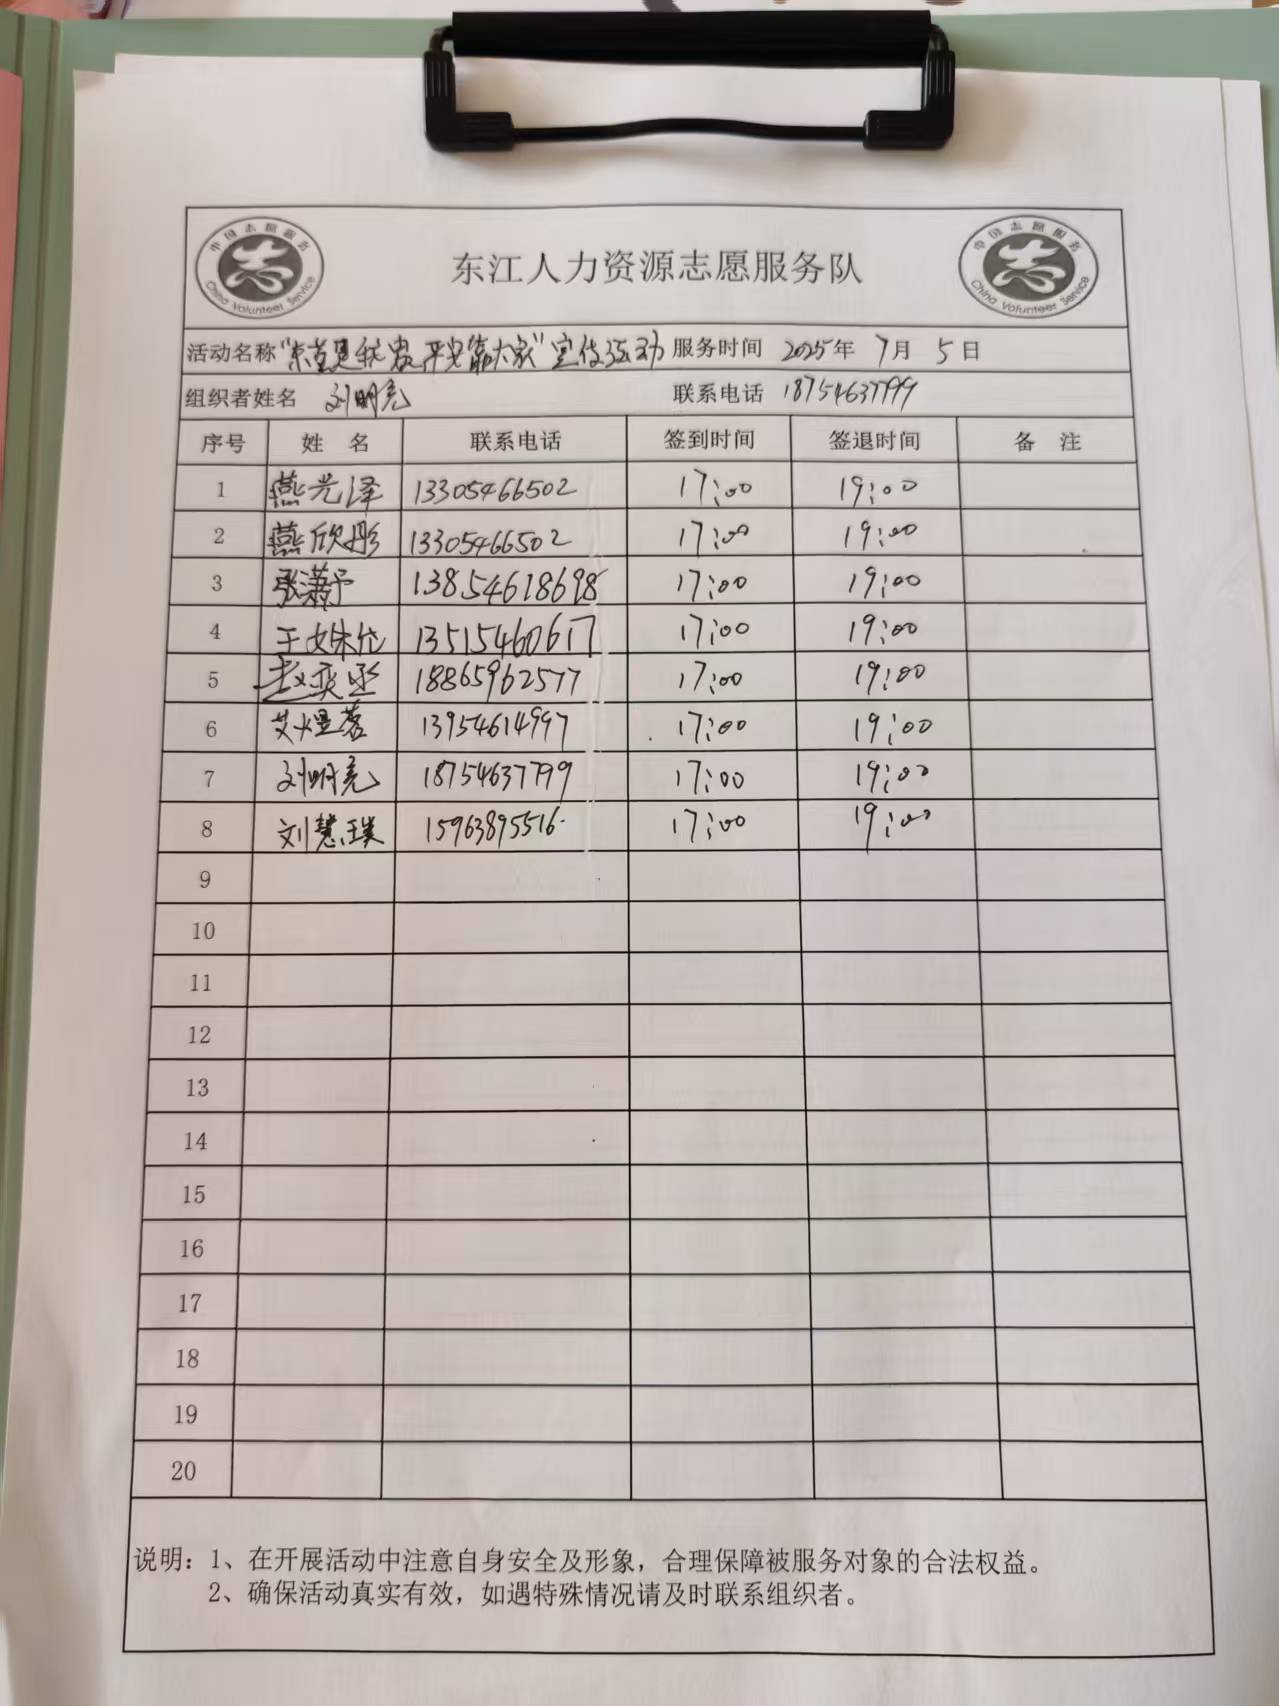 中国志愿服务
China Volunteer Service
东江人力资源志愿服务队
中国志愿服务
China Volunteer Service
活动名称 "东营是我家 平安靠大家" 宣传活动 服务时间 2025年 7月 5日
组织者姓名 刘明亮 联系电话 18754637799
序号 姓 名 联系电话 签到时间 签退时间 备 注
1 燕光泽 13305466502 17:00 19:00
2 燕欣彤 13305466502 17:00 19:00
3 张潇予 13854618698 17:00 19:00
4 王 13515460617 17:00 19:00
5 赵奕丞 18865962577 17:00 19:00
6 艾煜茗 13954614997 17:00 19:00
7 刘明亮 18754637799 17:00 19:00
8 刘慧璞 15963895516 17:00 19:00
9
10
11
12
13
14
15
16
17
18
19
20
说明：1、在开展活动中注意自身安全及形象，合理保障被服务对象的合法权益。
2、确保活动真实有效，如遇特殊情况请及时联系组织者。